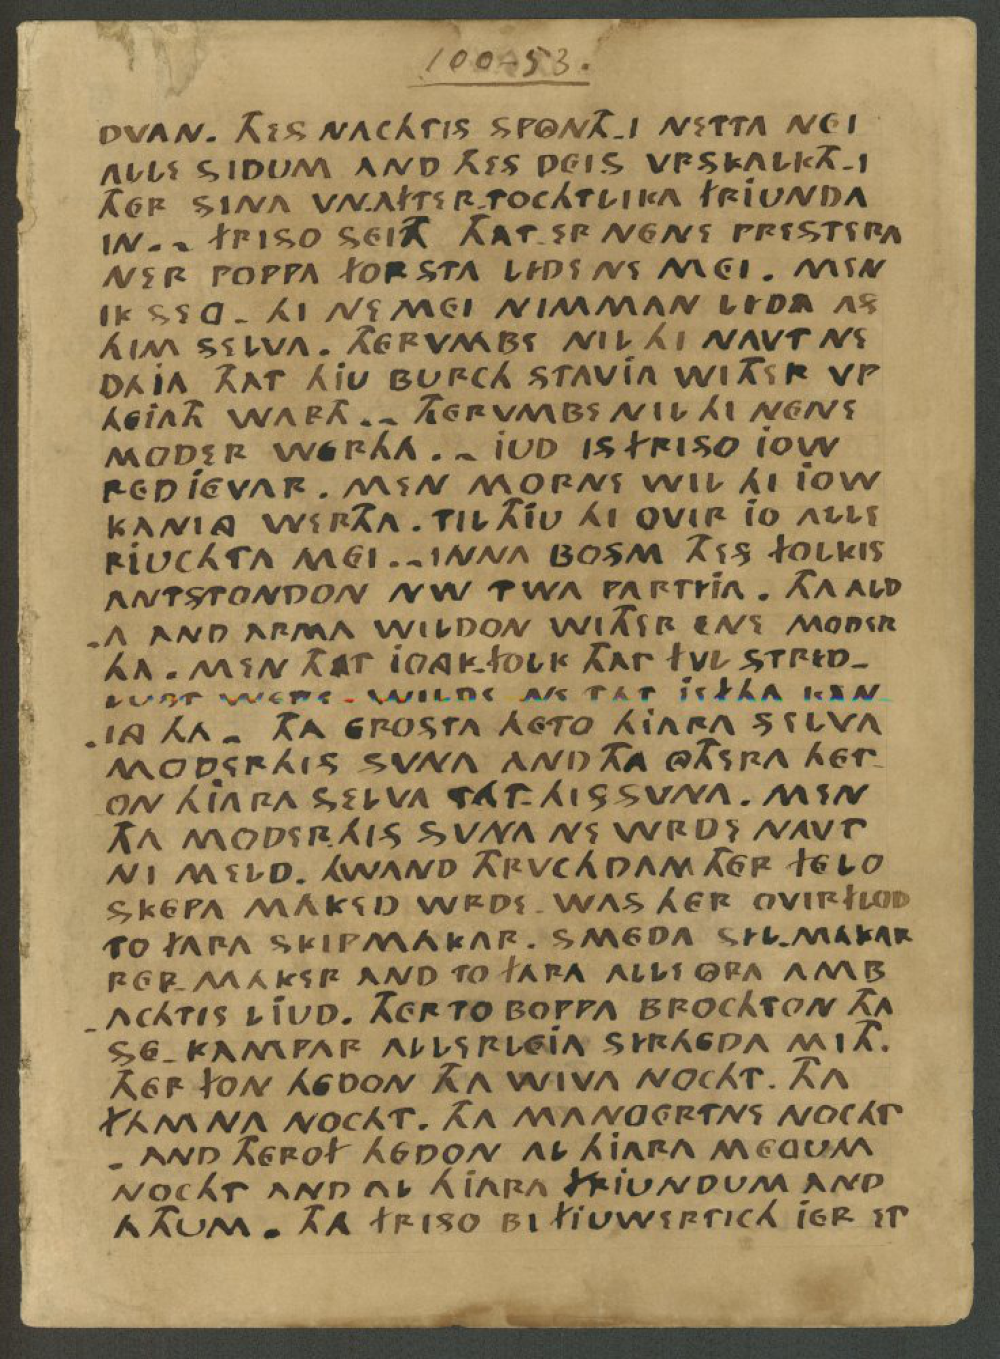 100-53.
DVAN. THES NACHTIS SPONTH-I NETTA NEI
ALLE SIDUM AND THES DEIS VRSKALKTH-I
THER SINA VNAFTER-TOCHTLIKA FRIUNDA
IN.-~ FRISO SEITH THAT-ER NENE PRESTERA
NER POPPA FORSTA LYDE NE MEI. MEN
IK SEG- HI NE MEI NIMMAN LYDA AS
HIM SELVA. THERVMBE NIL HI NAVT NE
DHJA THAT HJU BURCH STAVJA WITHER VP
HEJATH WARTH.-~ THERVMBE NIL HI NENE
MODER WERHA.-~ JUD IS FRISO JOW
REDJEVAR. MEN MORNE WIL HI JOW
KANIG WERTHA. TIL THJU HI OVIR JO ALLE
RJUCHTA MEI.-~ INNA BOSM THES FOLKIS
ANTSTONDON NW TWA PARTYJA. THA ALD
-A AND ARMA WILDON WITHER ENE MODER
HA. MEN THAT JONGK-FOLK THAT FVL STRYD-
LUST WERE- WILDE NE TAT JEFTHA KEN
-IG HA- THA EROSTA HETO HJARA SELVA
MODERHIS SVNA AND THA OTHERA HET-
ON HJARA SELVA TAT-HIS SVNA. MEN
THA MODER.HIS SVNA NE WRDE NAVT
NI MELD. HWAND THRVCHDAM THER FELO
SKEPA MAKED WRDE- WAS HER OVIRFLOD
TO FARA SKIPMAKAR. SMEDA SYL-MAKAR
REP-MAKER AND TO FARA ALLE ORA AMB
-ACHTIS LJUD. THERTO BOPPA BROCHTON THA
SE-KAMPAR ALLERLEJA SYRHEDA MITH.
THER FON HEDON THA WIVA NOCHT. THA
FHMNA NOCHT. THA MANGERTNE NOCHT
- AND THEROF HEDON AL HJARA MEGUM
NOCHT AND AL HJARA FRIUNDUM AND
ATHUM. THA FRISO BI FJUWERTICH JER ET